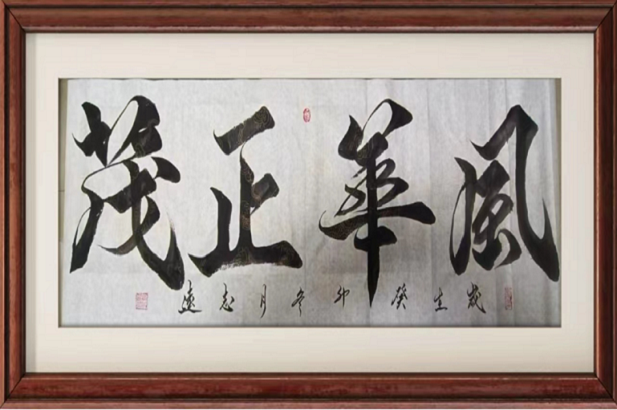 風華正茂
歲在癸卯冬月志遠